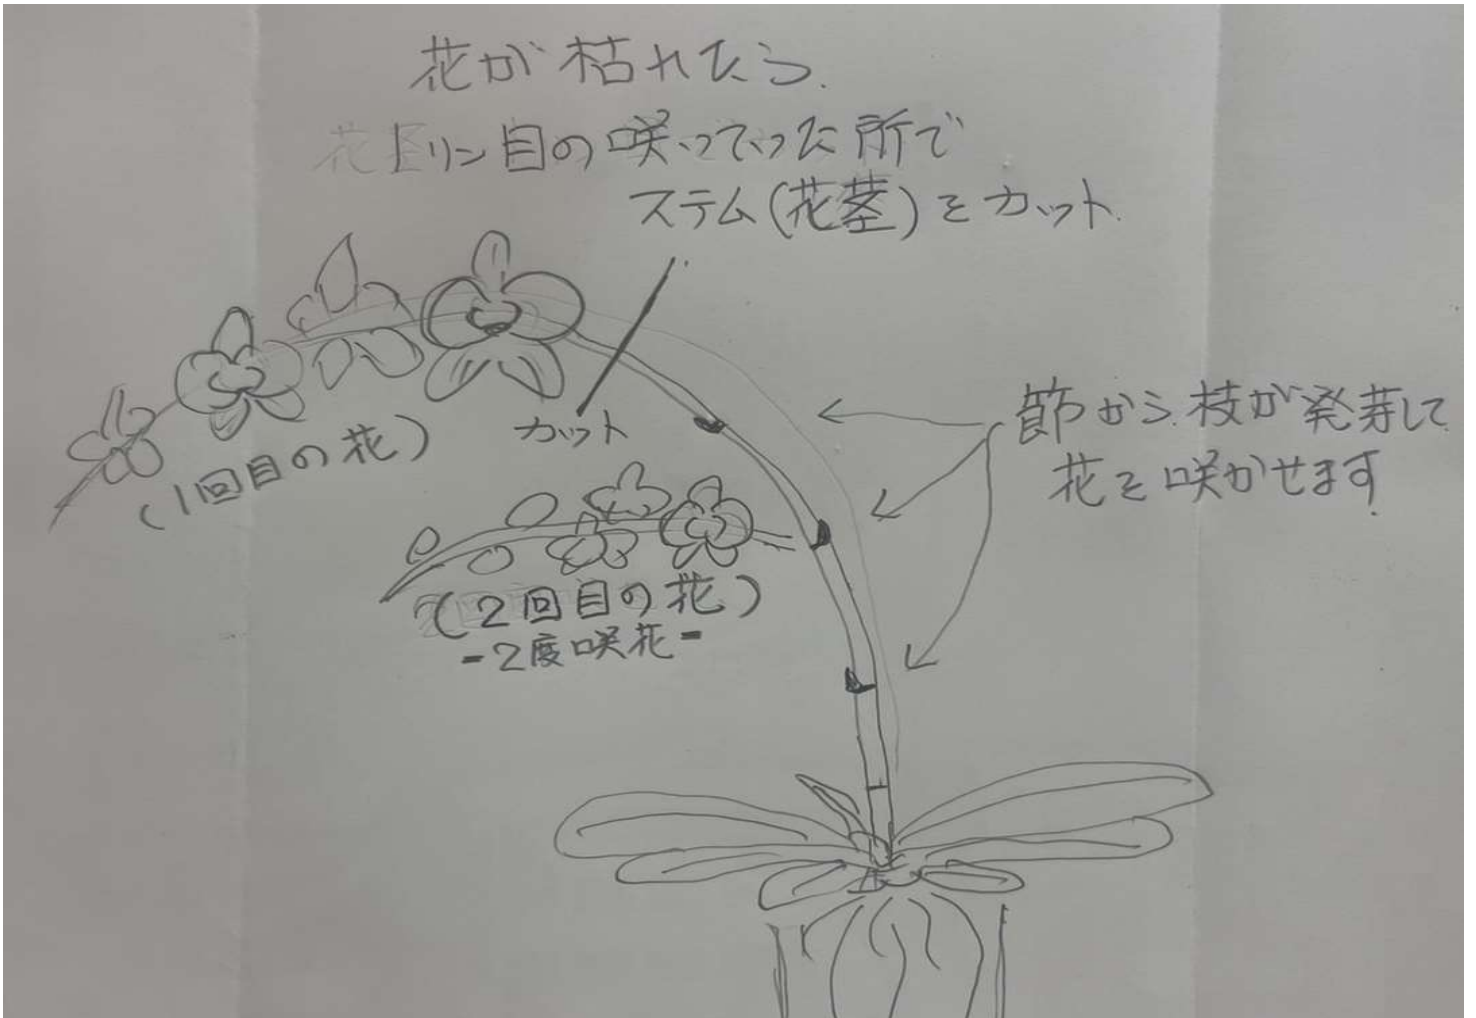 花が枯れたら、
1リン目の咲っていった所で
ステム(花茎)をカット.
カット
(1回目の花)
節から、枝が発芽して
花を咲かせます
(2回目の花)
-2度咲花-